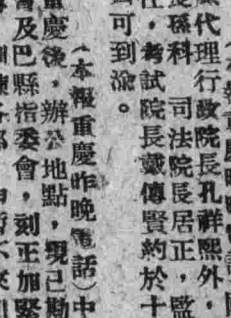 代理行政院長孔祥熙外，
長孫科　司法院長居正，監
，考試院長戴傳賢約於十
可到渝。
（本報重慶昨晚電話）中
重慶後，辦公地點，現已勘
會及巴縣指委會，刻正加緊